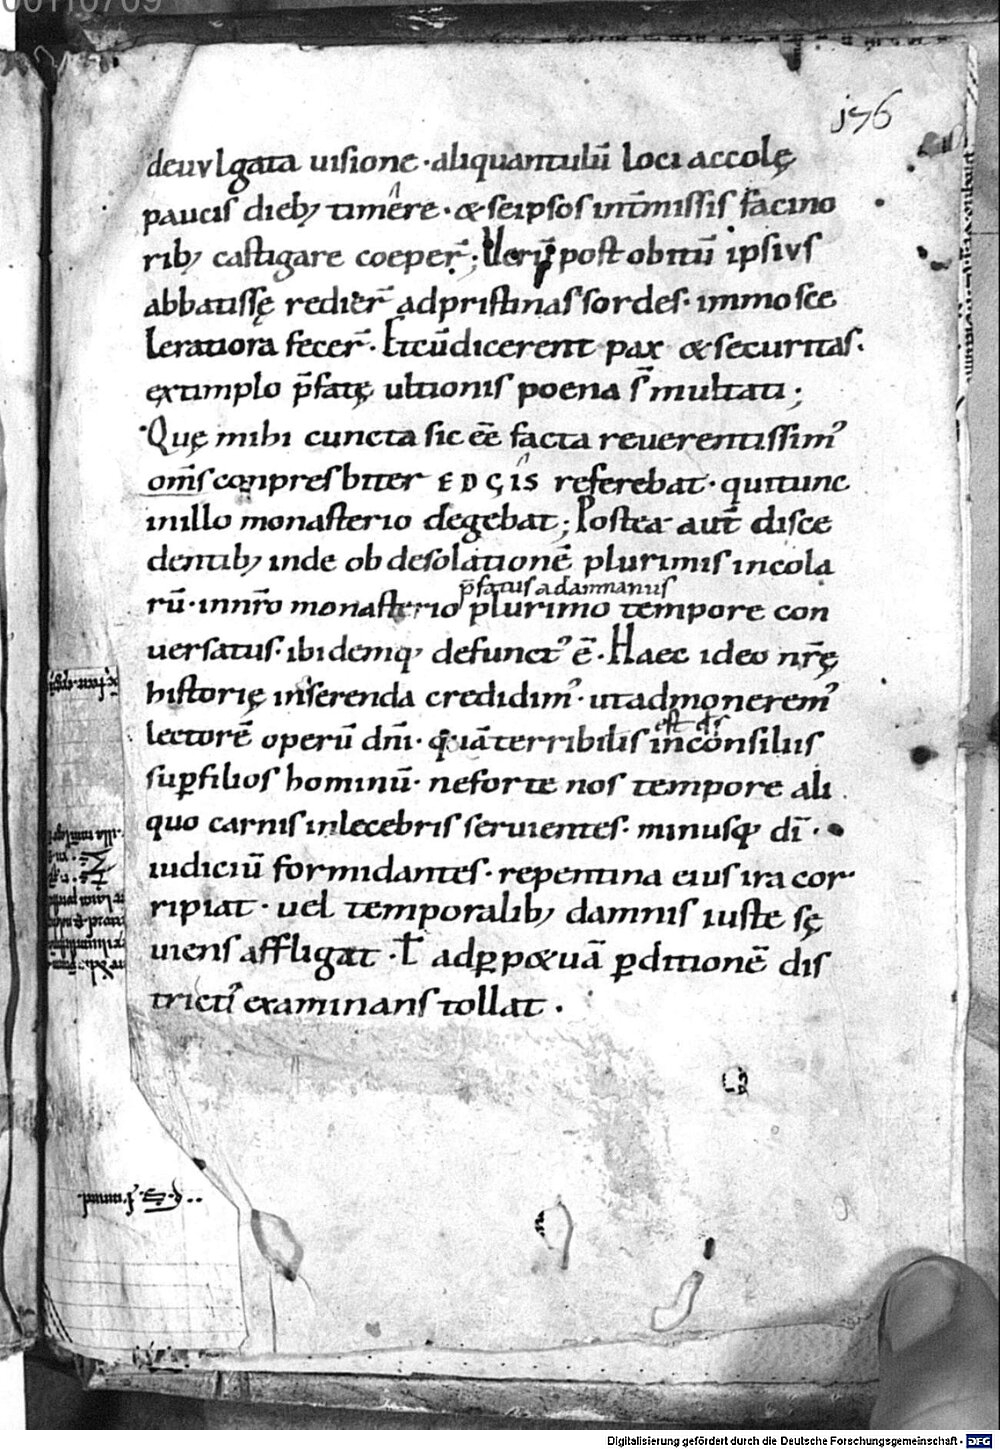 00110709
176
deuvlgata uisione · aliquantulū loci accolę
paucis dieb; timere · & seipsos int̄missis facino
rib; castigare coeper̄; Uerū post obitū ipsivs
abbatissę redier̄ ad pristinas sordes · immo sce
leratiora fecer̄ · Et cū dicerent pax & securitas ·
extimplo p̄fatę ultionis poena s̄ multati ;
Quę mihi cuncta sic eē facta reuerentissim'
om̄s conpresbiter EDGIS referebat · qui tunc
in illo monasterio degebat ; Postea aut̄ disce
dentib; inde ob desolationē plurimis incola
p̄fatus adammanus
rū · in nr̄o monasterio plurimo tempore con
uersatus · ibidemq; defunct' ē · Haec ideo nr̄ę
historię inserenda credidim' · ut admonerem'
lectorē operū dn̄i · quā terribilis in consiliis
est d̄s
sup̱ filios hominū · ne forte nos tempore ali
quo carnis inlecebris seruientes · minusq; dī ·
iudiciū formidantes · repentina eius ira cor
ripiat · uel temporalib; damnis iuste sę
uiens affligat · ł ad p̱p&uā p̱ditionē dis
trict' examinans tollat ·
Digitalisierung gefördert durch die Deutsche Forschungsgemeinschaft · DFG